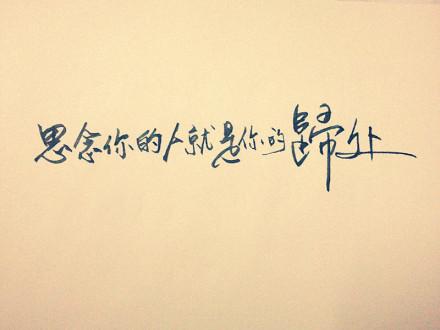 思念你的人就是你的歸处